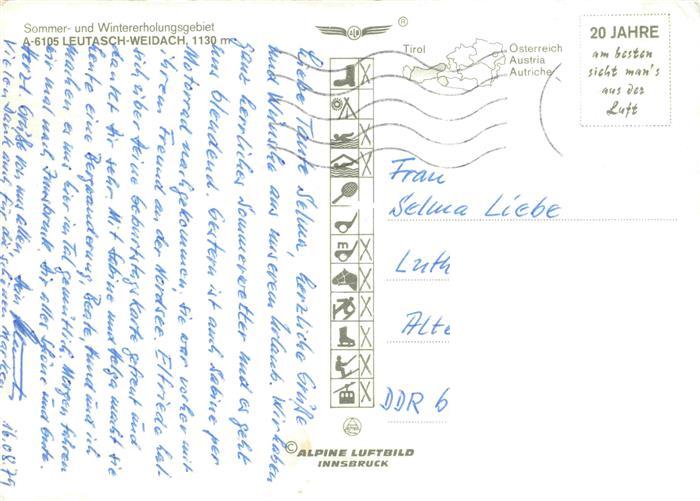 Sommer- und Wintererholungsgebiet
A-6105 LEUTASCH-WEIDACH, 1130 m
®
Tirol
Österreich
Austria
Autriche
20 JAHRE
am besten
sieht man's
aus der
Luft
Liebe Tante Selma, herzliche Grüße
und Wünsche aus unserem Urlaub. Wir haben
ganz herrliches Sommerwetter und es geht
uns blendend. Gestern ist auch Sabine per
Motorrad nachgekommen, sie war vorher mit
ihrem Freund an der Nordsee. Elfriede hat
sich über deine Geburtstagskarte gefreut und
dankt dir sehr. Mit Sabine und Helga macht sie
heute eine Bergwanderung, Beate, Hund und ich
machen es uns hier im Tal gemütlich. Morgen fahren
wir mal nach Innsbruck. Dir alles Schöne und Gute.
Herzl. Grüße von uns allen, Dein
Vielen Dank auch für die schönen Marken
16.08.79
Frau
Selma Liebe
Luth
Alte
DDR 6
E
© ALPINE LUFTBILD
INNSBRUCK